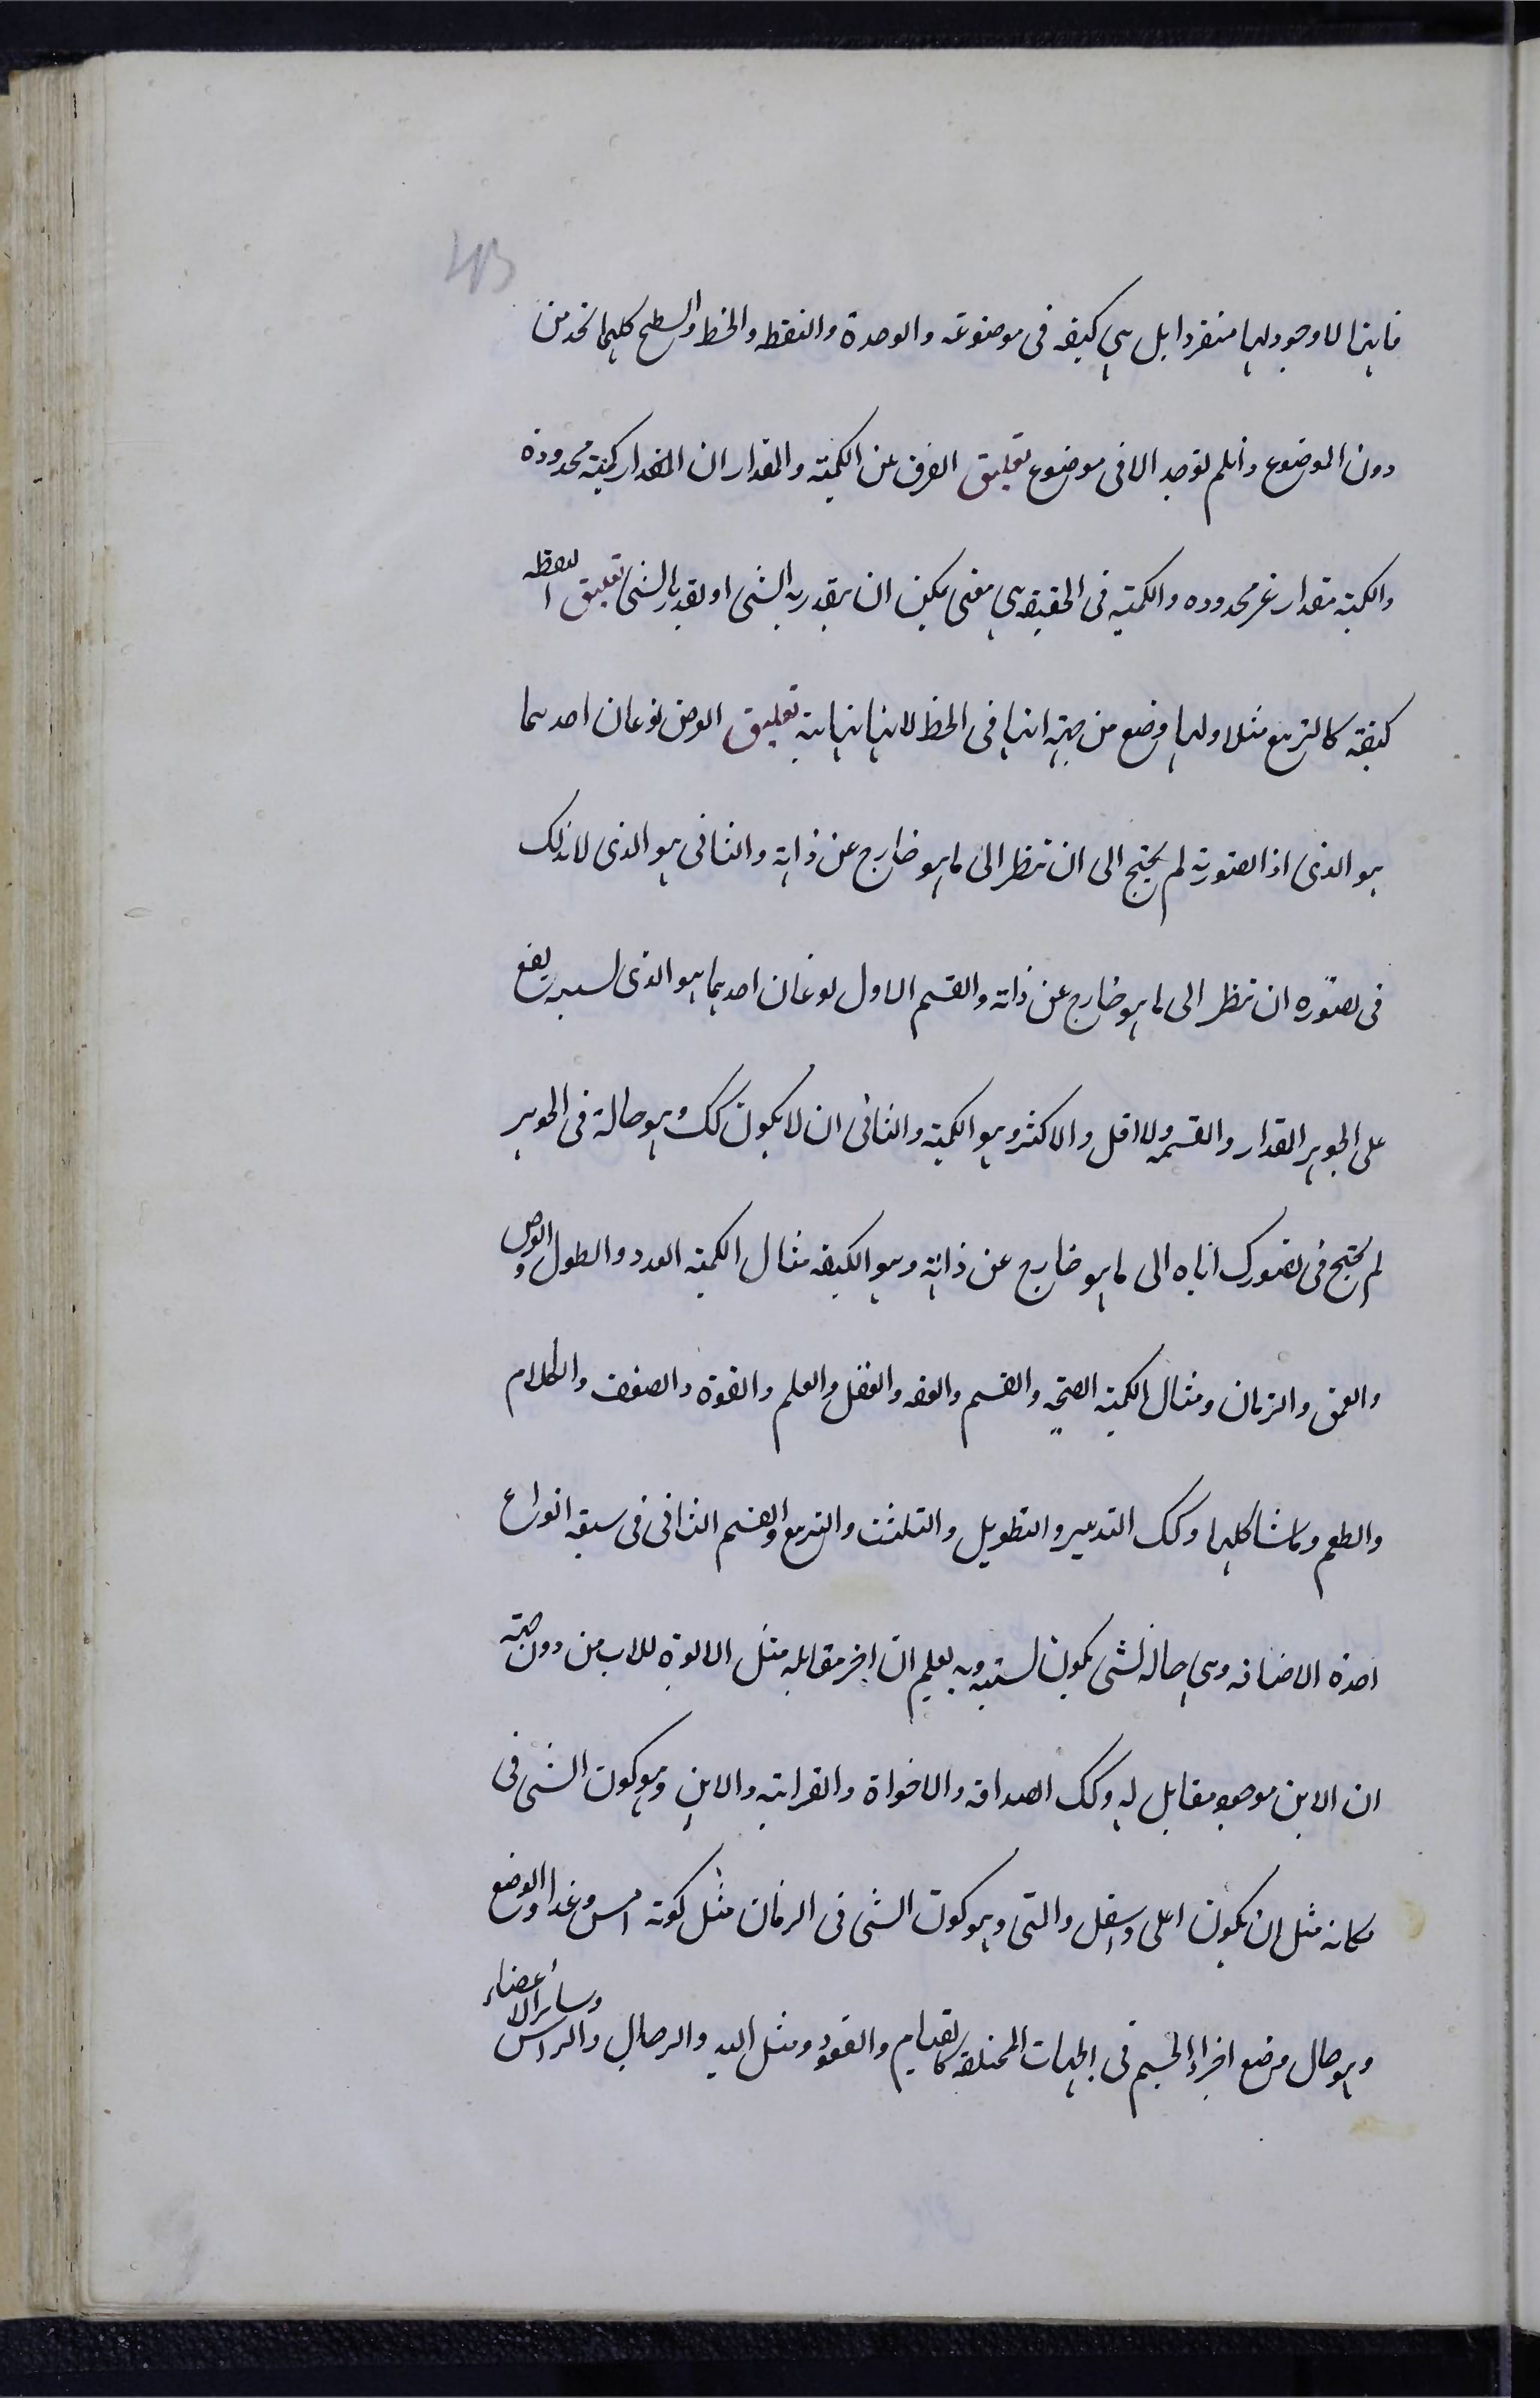 فانها لا وجود لها منفردا بل هي كيفيه فى موضوعه والوحدة والنقطه والخط والسطح كلها تحد من
دون الموضوع وان لم توجد الا فى موضوع تعليق الفرق بين الكميته والمقدار ان المقدار كميته محدودة
والكميته مقدار غير محدوده والكميته فى الحقيقه هى معنى يمكن ان يقدر به الشى او يقدر بالشى تعليق النقطه
كيفيته كالتربيع مثلا ولها وضع من جهته انها فى الخط لانها نهايته تعليق العرض نوعان احدهما
هو الذى اذا تصورته لم يحتج الى ان تنظر الى ما هو خارج عن ذاته والثانى هو الذى لا بدلك
فى تصوره ان تنظر الى ما هو خارج عن ذاته والقسم الاول نوعان احدهما هو الذى لسببه يقع
على الجوهر المقدار والقسمه والاقل والاكثر وهو الكميته والثانى ان لا يكون كك وهو حالة فى الجوهر
لم يحتج فى تصورك اياه الى ما هو خارج عن ذاته وهو الكيفيه مثال الكميته العدد والطول والعرض
والعمق والزمان ومثال الكميته الصحته والقسم والعفه والعقل والعلم والقوة والضعف والكلام
والطعم وما شاكلها وكك التدوير والتطويل والتثليث والتربيع والقسم الثانى فى سبعه انواع
احده الاضافه وهى حاله لشى يكون لسببه وبه يعلم ان اخر مقابله مثل الابوة للاب من دون جهته
ان الابن موجود مقابل له وكك الصداقه والاخواة والقرابته والاين وهو كون الشى فى
مكانه مثل ان يكون اعلى واسفل والمتى وهو كون الشى فى الزمان مثل كونه امس وغدا والوضع
وهو حال وضع اجزاء الجسم فى الجهات المختلفه كالقيام والقعود ومثل اليد والرجل والراس وسائر الاعضاء